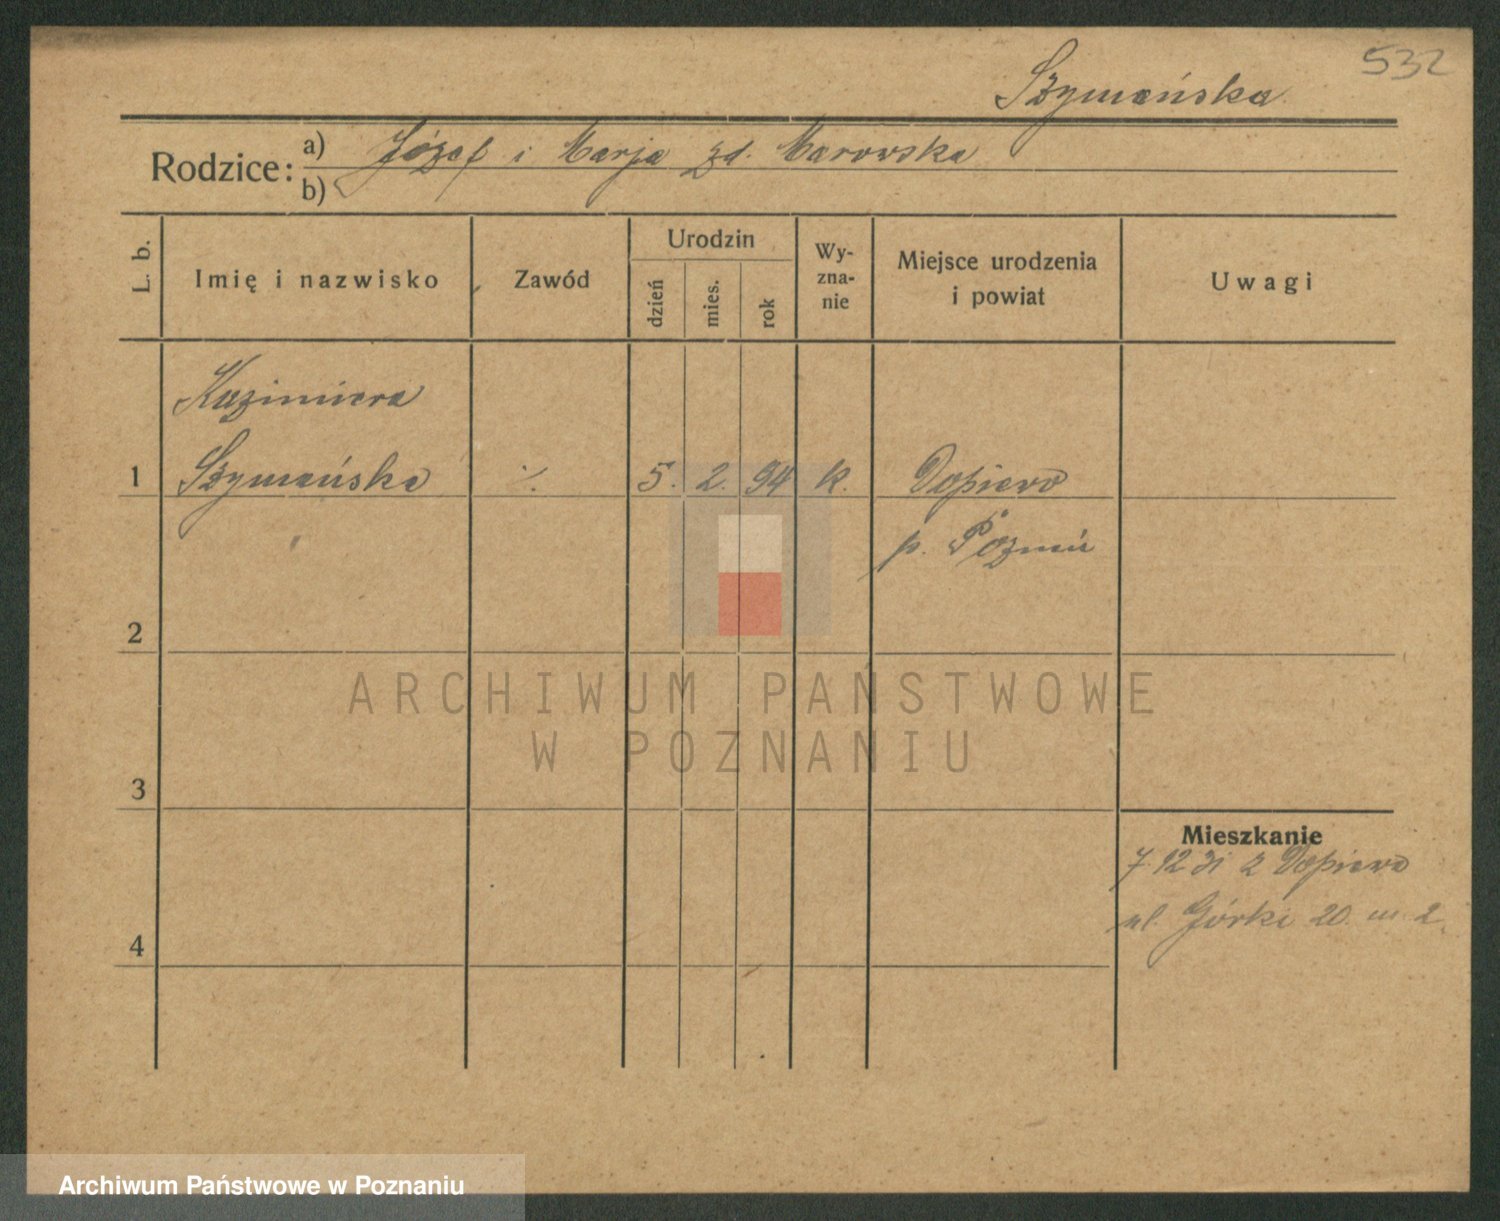 532
Szymańska
Rodzice:
a) Józef i Marja zd. Marowska
b)
L. b.
Imię i nazwisko
Zawód
Urodzin
dzień
mies.
rok
Wy-
zna-
nie
Miejsce urodzenia
i powiat
Uwagi
Kazimiera
1 Szymańska ./. 5. 2. 94 k. Dopiewo
p. Poznań
2
ARCHIWUM PAŃSTWOWE
W POZNANIU
3
Mieszkanie
7 12 31 z Dopiewo
ul. Górki 20. m 2.
4
Archiwum Państwowe w Poznaniu